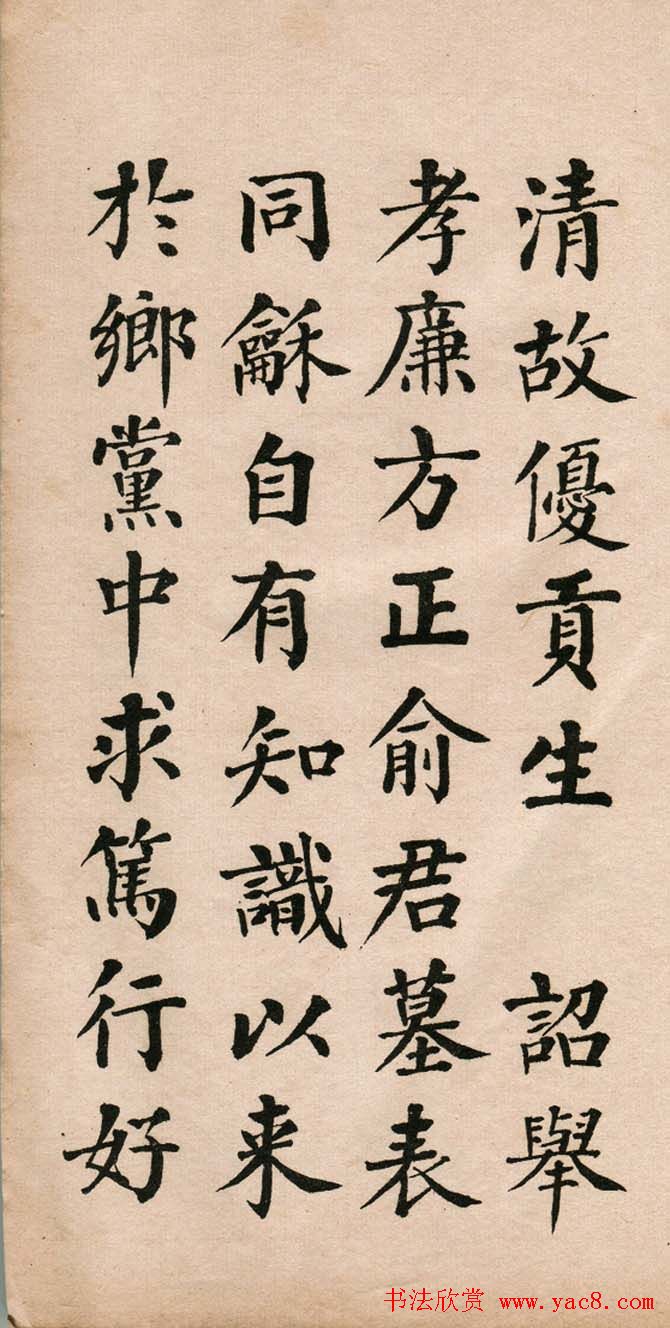 清故優貢生 詔舉
孝廉方正俞君墓表
同龢自有知識以来
於鄉黨中求篤行好
书法欣赏 www.yac8.com